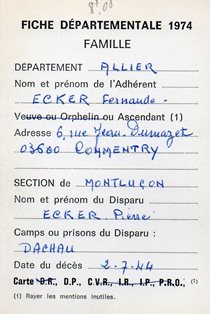 8,00
FICHE DÉPARTEMENTALE 1974
FAMILLE
DÉPARTEMENT ALLIER
Nom et prénom de l'Adhérent
ECKER Fernande
Veuve ou Orphelin ou Ascendant (1)
Adresse 6, rue Jean-Dumazet
03600 COMMENTRY
SECTION DE MONTLUÇON
Nom et prénom du Disparu
ECKER Pierre
Camps ou prisons du Disparu :
DACHAU
Date du décès 2-7-44
Carte D.R., D.P., C.V.R., I.R., I.P., P.R.O., (1)
(1) Rayer les mentions inutiles.